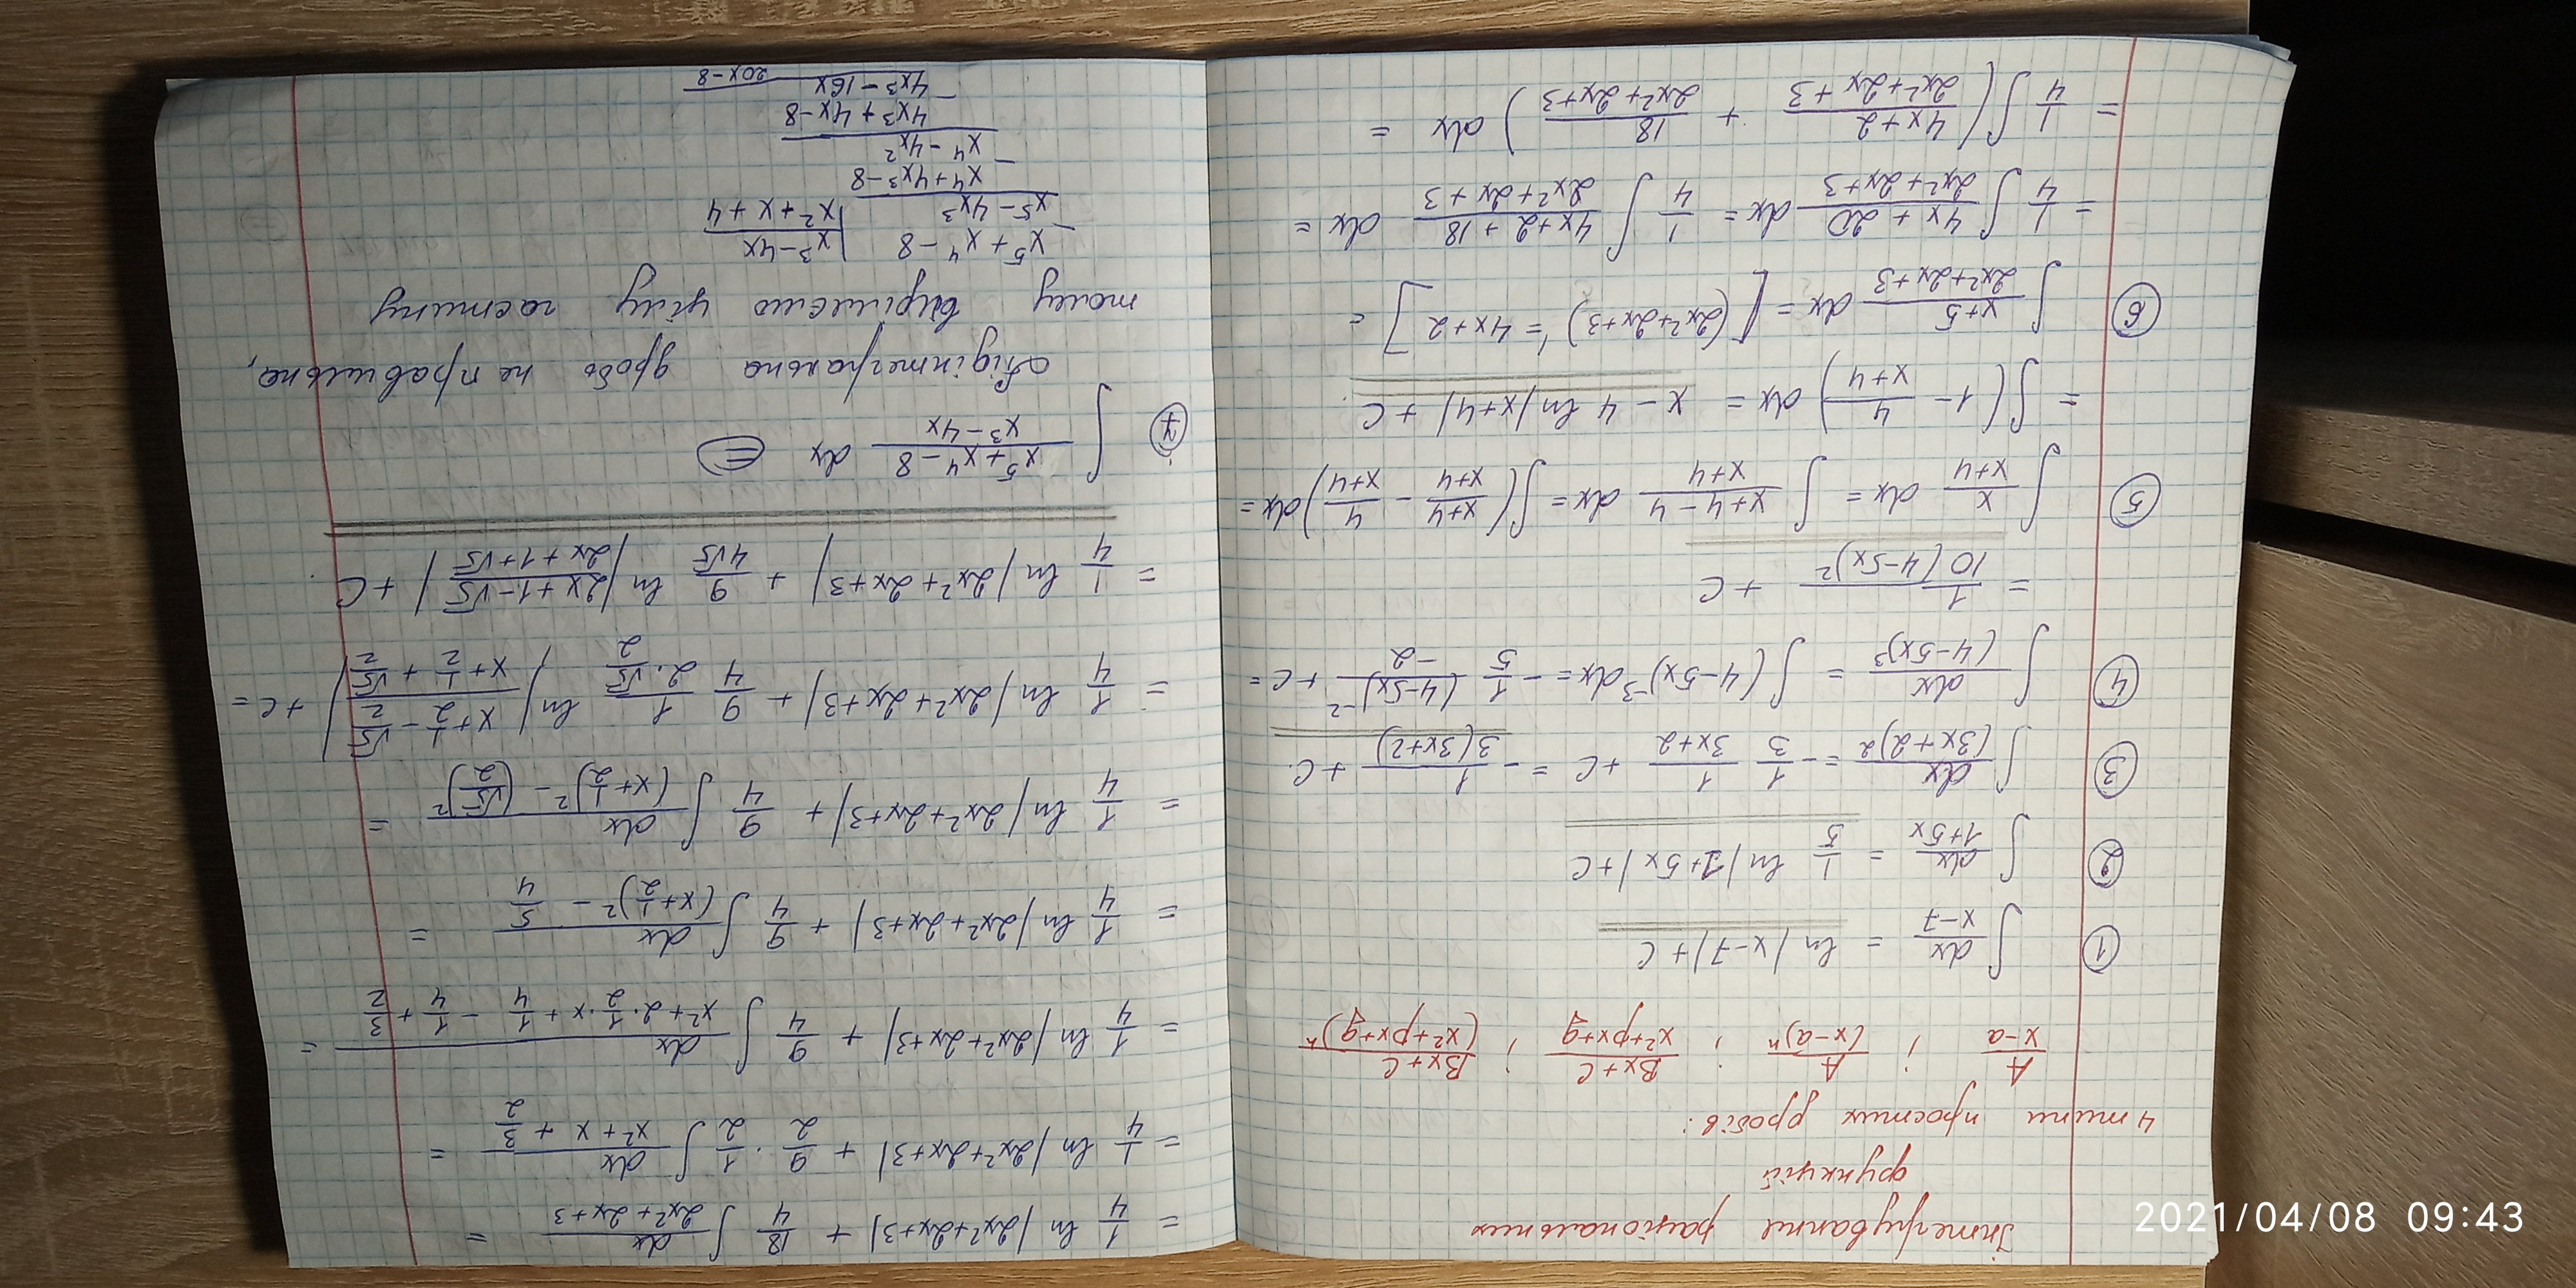 Інтегрування раціональних
функцій
4 типи простих дробів:
A/(x-a) ; A/(x-a)ⁿ ; (Bx+C)/(x²+px+g) ; (Bx+C)/(x²+px+g)ⁿ
① ∫ dx/(x-7) = ln|x-7|+C
② ∫ dx/(1+5x) = 1/5 ln|1+5x|+C
③ ∫ dx/(3x+2)² = -1/3 1/(3x+2) + C = -1/(3(3x+2)) + C.
④ ∫ dx/(4-5x)³ = ∫(4-5x)⁻³dx = -1/5 (4-5x)⁻²/(-2) + C =
= 1/(10(4-5x)²) + C
⑤ ∫ x/(x+4) dx = ∫ (x+4-4)/(x+4) dx = ∫((x+4)/(x+4) - 4/(x+4))dx =
= ∫(1 - 4/(x+4)) dx = x - 4 ln|x+4| + C.
⑥ ∫ (x+5)/(2x²+2x+3) dx = [(2x²+2x+3)' = 4x+2] =
= 1/4 ∫ (4x+20)/(2x²+2x+3) dx = 1/4 ∫ (4x+2+18)/(2x²+2x+3) dx =
= 1/4 ∫((4x+2)/(2x²+2x+3) + 18/(2x²+2x+3)) dx =
= 1/4 ln|2x²+2x+3| + 18/4 ∫ dx/(2x²+2x+3) =
= 1/4 ln|2x²+2x+3| + 9/2 · 1/2 ∫ dx/(x²+x+3/2) =
= 1/4 ln|2x²+2x+3| + 9/4 ∫ dx/(x²+2·1/2·x+1/4-1/4+3/2) =
= 1/4 ln|2x²+2x+3| + 9/4 ∫ dx/((x+1/2)²-5/4) =
= 1/4 ln|2x²+2x+3| + 9/4 ∫ dx/((x+1/2)²-(√5/2)²) =
= 1/4 ln|2x²+2x+3| + 9/4 1/(2·√5/2) ln|(x+1/2-√5/2)/(x+1/2+√5/2)| + C =
= 1/4 ln|2x²+2x+3| + 9/(4√5) ln|(2x+1-√5)/(2x+1+√5)| + C.
⑦ ∫ (x⁵+x⁴-8)/(x³-4x) dx =
Підінтегральна дробь не правильна,
тому вирішемо цілу частину
x⁵+x⁴-8 | x³-4x
x⁵-4x³ | x²+x+4
x⁴+4x³-8
x⁴-4x²
4x³+4x-8
4x³-16x
20x-8
2021/04/08 09:43